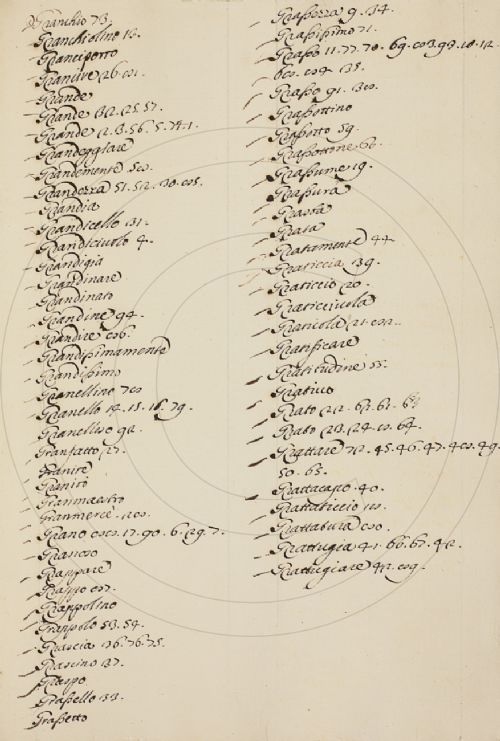 Granchio 73.
Granchiolino 12.
Granciporro
Grancire
Grande
Grande 32. 25. 57.
Grande 2. 3. 56. 5. 74. 1.
Grandeggiare
Grandemente
Grandezza 51. 52.
Grandia
Grandicello 131.
Grandiciuolo 4.
Grandigia
Grandinare
Grandinato
Grandine 94.
Grandire
Grandissimamente
Grandissimo
Granellino
Granello 14. 13. 18. 79.
Granelloso 92.
Granfatto 27.
Granire
Granito
Granmaestro
Granmercè
Grano 17. 90. 6. 29. 7.
Grappare
Grappo
Grappolino
Grappolo 53. 54.
Grascia 76. 75.
Grascino 37.
Graspo
Grassello 33.
Grassetto
Grassezza 9. 34.
Grassissimo 71.
Grasso 11. 77. 70. 69. 18. 12.
135.
Grasso 91.
Grassottino
Grassotto 59.
Grassottone 66.
Grassume 19.
Grassura
Grata
Gratamente 44
Graticcia 39.
Graticcio 20.
Graticciuola
Graticola 21.
Gratificare
Gratitudine 55.
Grativo
Grato
Grato 23. 24. 64.
Grattare 72. 45. 46. 47. 49.
50. 65.
Grattacapo 40.
Grattaticcio
Grattatura
Grattugia 41. 66. 67. 42.
Grattugiare 42.